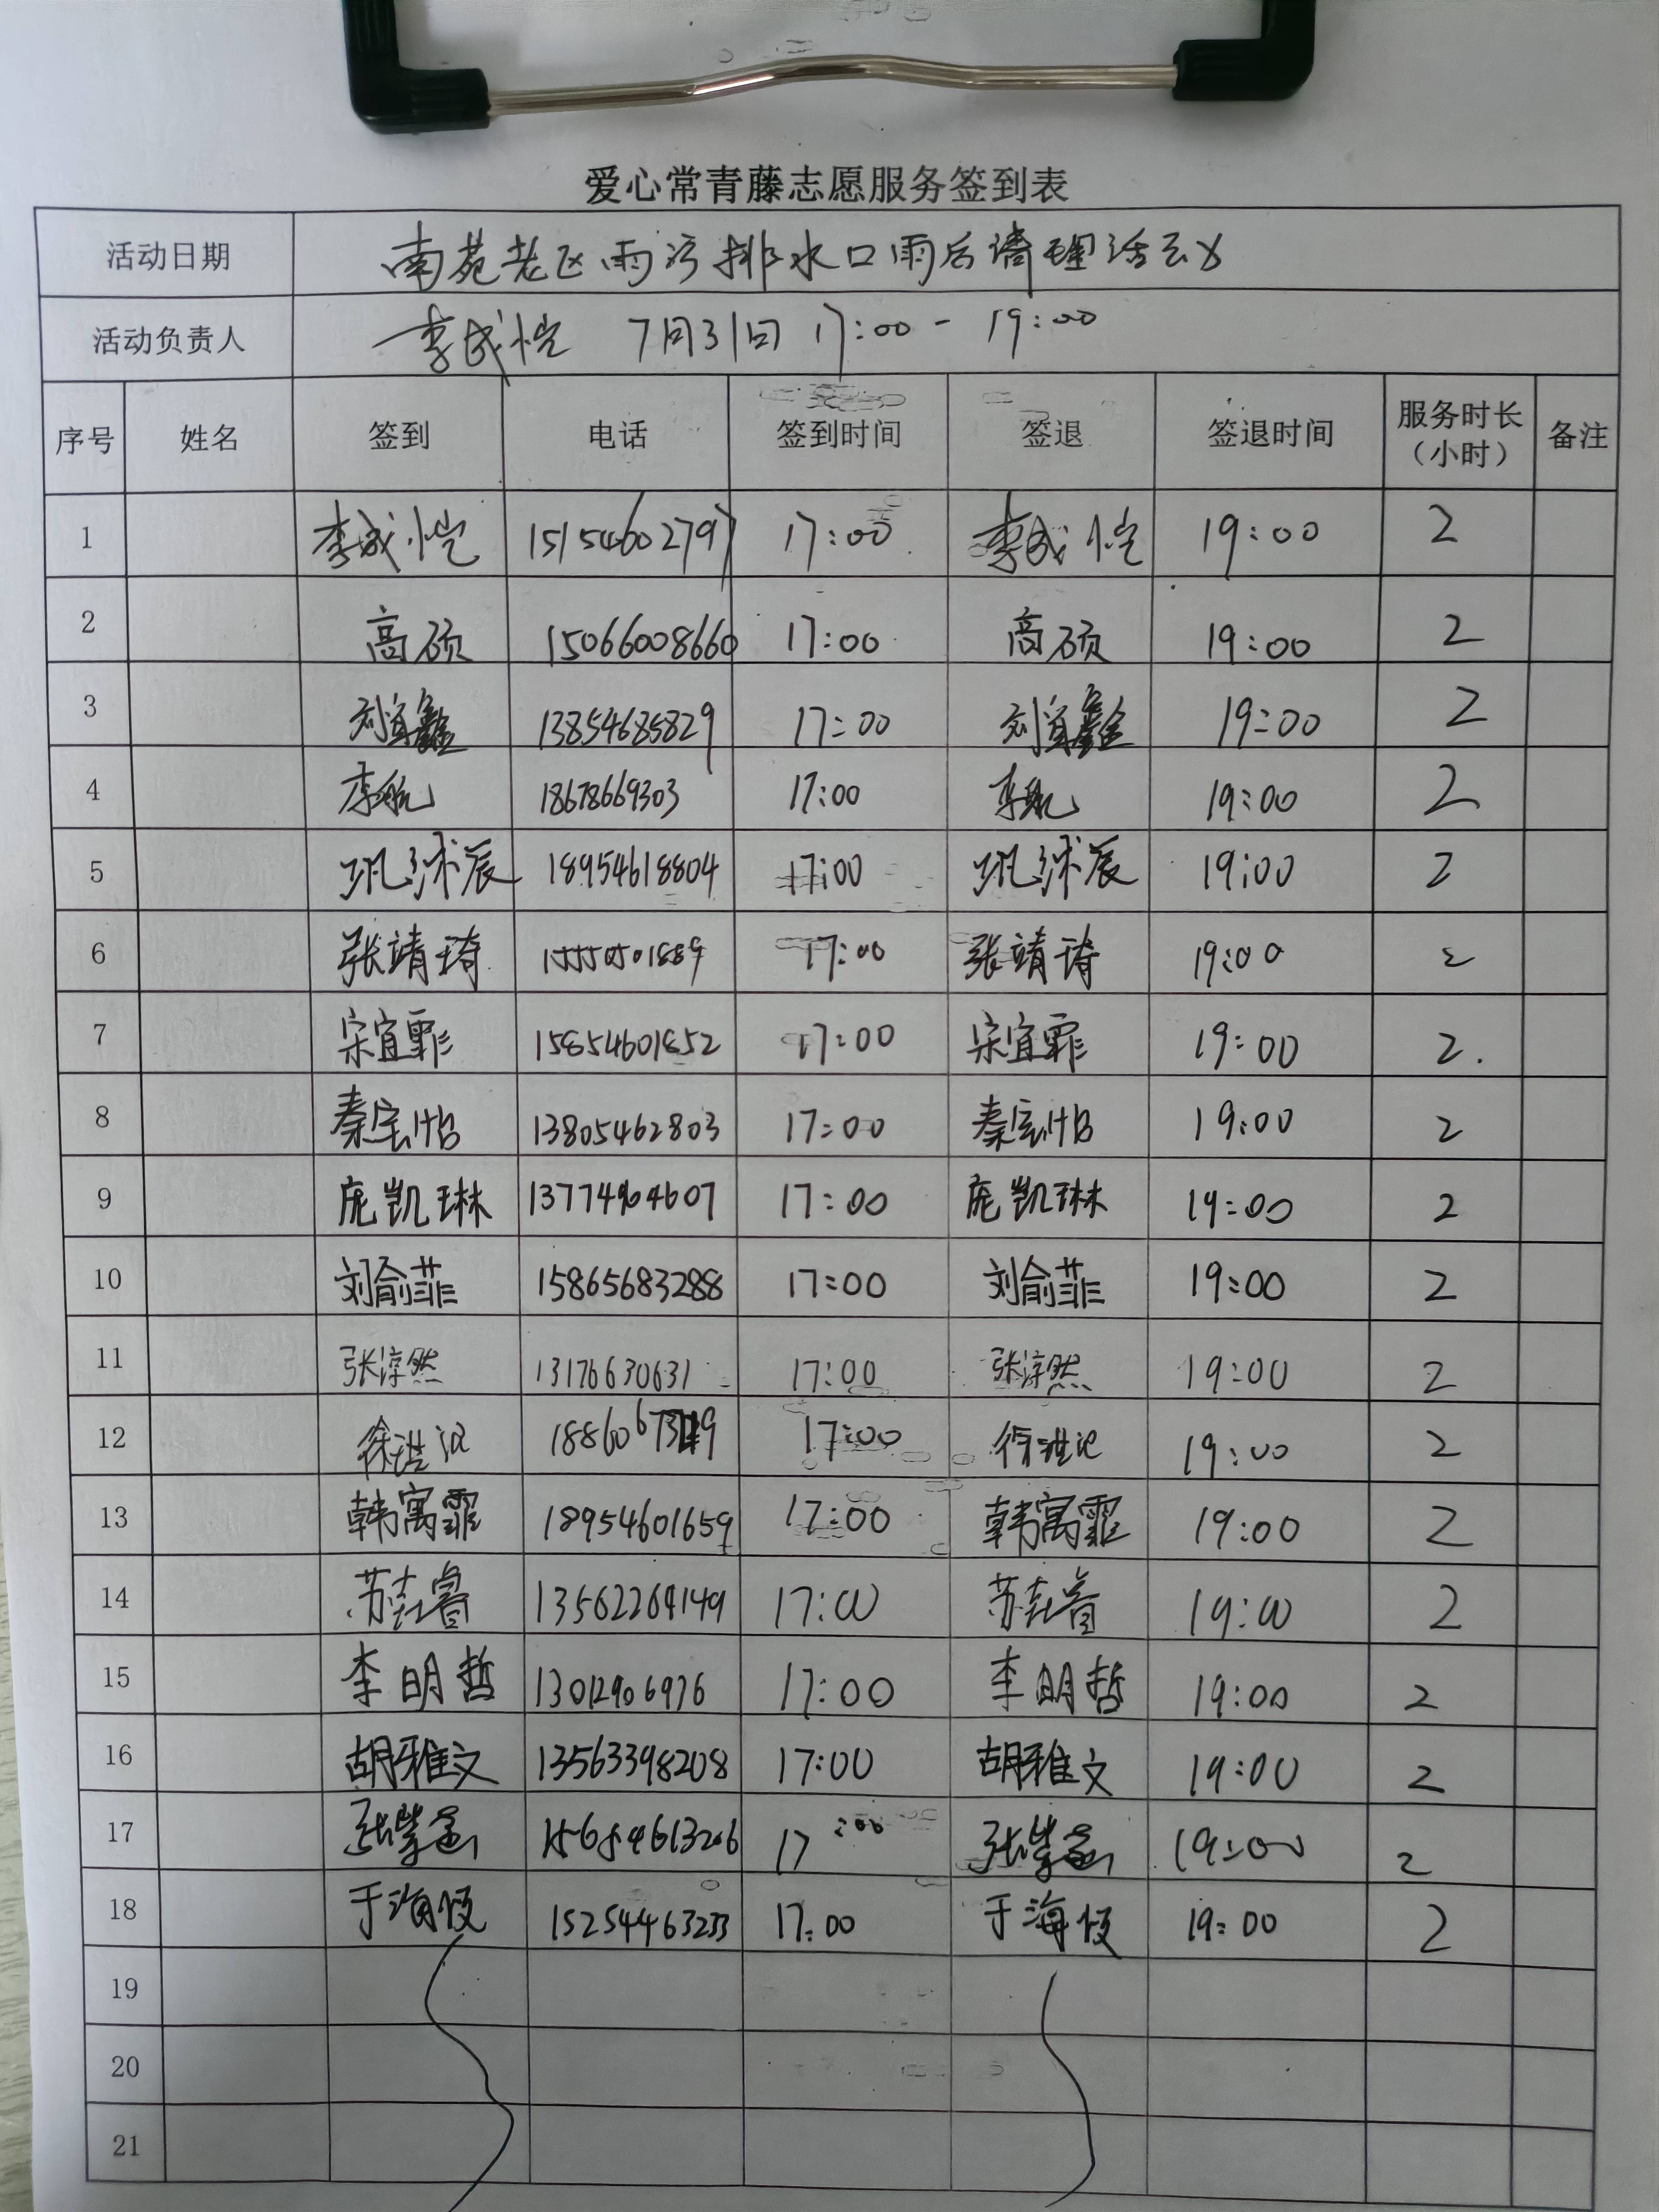 爱心常青藤志愿服务签到表
活动日期 南苑老区雨污排水口雨后清理活动
活动负责人 李成恺 7月31日 17:00-19:00
序号 姓名 签到 电话 签到时间 签退 签退时间 服务时长（小时） 备注
1 李成恺 15154602797 17:00 李成恺 19:00 2
2 高硕 15066008660 17:00 高硕 19:00 2
3 刘宜鑫 13854685829 17:00 刘宜鑫 19:00 2
4 李航 18678669303 17:00 李航 19:00 2
5 18954618804 17:00 19:00 2
6 张靖琦 17:00 张靖琦 19:00 2
7 宋宜霏 15854601852 17:00 宋宜霏 19:00 2.
8 秦宝怡 13805462803 17:00 秦宝怡 19:00 2
9 庞凯琳 17:00 庞凯琳 19:00 2
10 刘俞菲 15865683288 17:00 刘俞菲 19:00 2
11 张淳然 13176630631 17:00 张淳然 19:00 2
12 17:00 19:00 2
13 韩寓霏 18954601659 17:00 韩寓霏 19:00 2
14 13562264149 17:00 19:00 2
15 李明哲 13012906976 17:00 李明哲 19:00 2
16 胡雅文 13563398208 17:00 胡雅文 19:00 2
17 17:00 19:00 2
18 15254463233 17:00 19:00 2
19
20
21